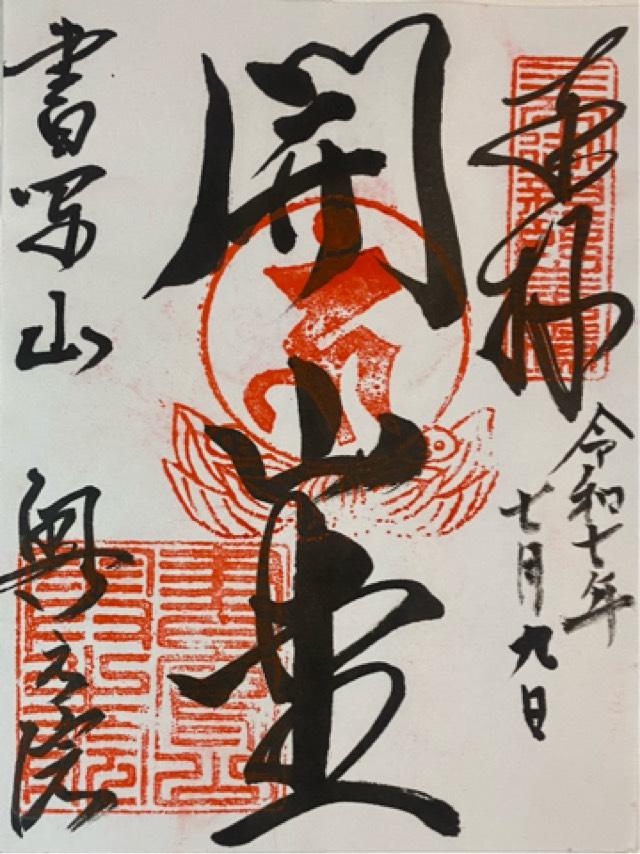 奉拝
令和七年
七月九日
開山堂
書写山
奥之院